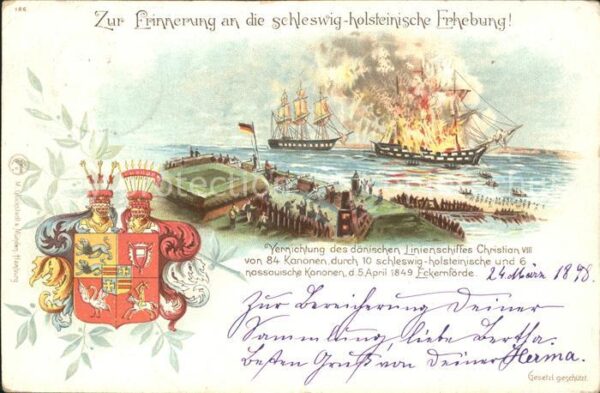 186
Zur Erinnerung an die schleswig-holsteinische Erhebung!
Vernichtung des dänischen Linienschiffes Christian VIII
von 84 Kanonen, durch 10 schleswig-holsteinische und 6
nassauische Kanonen, d. 5. April 1849 Eckernförde.
24. März 1898.
Zur Bereicherung Deiner
Sammlung, liebe Bertha.
Besten Gruß von Deiner Herma.
Gesetzl. geschützt.
Hamburg